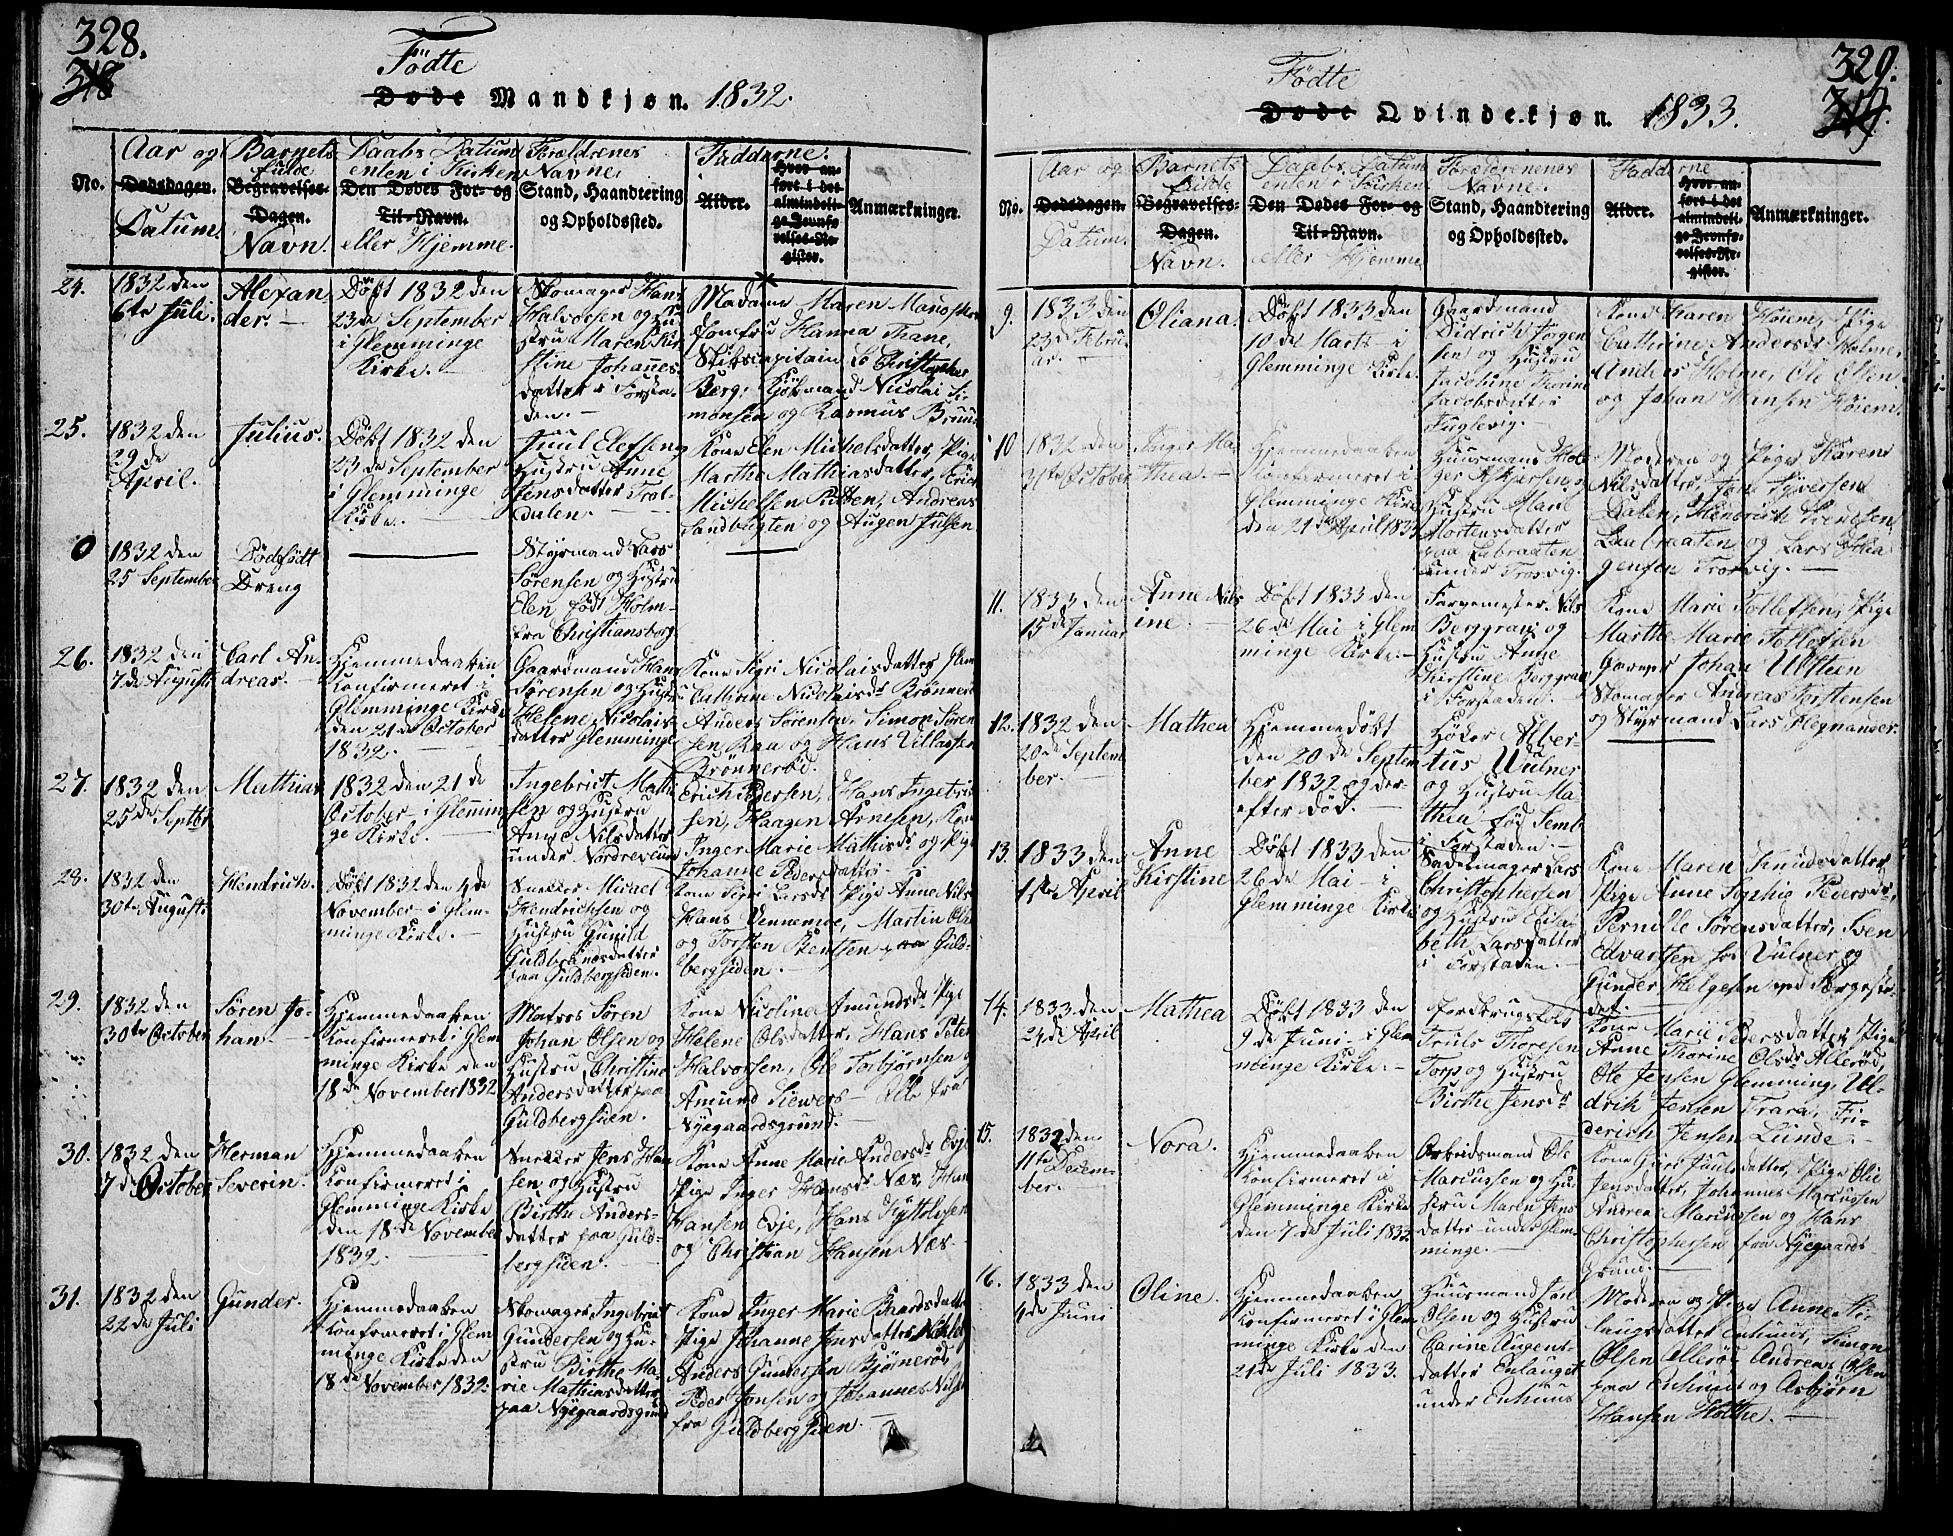 328.
318
Födte
Døde Mandkjøn. 1832.
No.
Aar og
Dødsdagen.
Datum.
Barnets
fulde
Begravelses-
Dagen.
Navn.
Daabs Datum
enten i Kirken
Den Dødes For- og
Til-Navn.
eller Hjemme.
Forældrenes
Navne,
Stand, Haandtering
og Opholdssted.
Fadderne.
Alder.
Hvor an-
ført i det
almindeli-
ge Jevnfø-
relses-Re-
gister.
Anmærkninger.
24.
1832 den
6te Juli.
Alexan
der. -
Döbt 1832 den
23de September
i Glemminge
Kirke. -
Skomager Hans
Halvorsen og Hu
stru Maren Kir
stine Johanes
datter i Forsta-
den. -
Madame Maren
Jomfru Hanna Thane,
Skibscapitain Christopher
Berg, Kjöbmand Nicolai Si
monsen og Rasmus Bruun
25.
1832 den
29de
April.
Julius.
Döbt 1832 den
23de September
i Glemminge
Kirke. -
Juul Elefsen og
Hustru Anne
Jensdatter Trol-
dalen. -
Kone Elen Michelsdatter, Pige
Marthe Mathiasdatter, Erich
Michelsen, Andreas
Sandbugten og Augen Julsen
0
1832 den
25 September
Dödfödt
Dreng
Styrmand Lars
Sörensen og Hustru
Elen, födt Holm-
fra Christiansborg
26.
1832 den
7de August
Carl An-
dreas. -
Hjemmedaaben
Konfirmeret i
Glemminge Kirke
den 21de October
1832.
Gaardmand Hans
Sörensen og Hustru
Helene Nicolais-
datter Glemminge
Kone Sigri Nicolaisdatter Glem
Cathrine Nicolaisdr Brönneröd
Anders Sörensen, Simon Sören
sen Raa og Hans Villassen
Brönneröd.
27.
1832 den
25de Septbr
Mathias
1832 den 21de
October - i Glemmin
ge Kirke. -
Ingebrict Mathi
sen og Hustru
Anne Nilsdatter
under Nordreveum
Erich Pedersen, Hans Ingebrit
sen, Haagen Arnesen, Kone
Inger Marie Mathisdr og Pige
Johanne Pedersdatter.
28.
1832 den
30te August
Hendrich.
Döbt 1832 den 4de
November - i Glem-
minge Kirke. -
Snekker Micael
Hendrichsen og
Hustru Gunild
Guldbrandsdatter
paa Guldbergsiden.
Kone Sigri Larsdr Pige Anne Nils
Hans Vennemoe, Martin Ols
og Torsten Bentsen paa Guld-
bergsiden. -
29.
1832 den
30te October
Sören Jo-
han. -
Hjemmedaaben
Konfirmeret i Glem
minge Kirke den
18de November 1832
Matros Sören
Johan Olsen og
Hustru Christine
Andersdatter paa
Guldbergsiden.
Kone Nicoline Amundsdr Pige
Helene Olsdatter, Hans Peter
Halvorsen, Ole Torbjörnsen og
Amund Siewers - Alle fra
Nyegaardsgrund. -
30.
1832 den
7de October
Herman
Severin.
Hjemmedaaben
Konfirmeret i
Glemminge Kirke
den 18de November
1832.
Snekker Jens Han
sen og Hustru
Birthe Anders-
datter paa Guld-
bergsiden. -
Kone Anne Marie Andersdr Evje
Pige Inger Hansdr Næs, Hans
Hansen Evje, Hans Kyttelsen
og Christian Hansen Næs. -
31.
1832 den
22de Juli
Gunder.
Hjemmedaaben
Konfirmeret i Glem
minge Kirke den
18de November 1832.
Skomager Ingebrict
Gundersen og Hu-
stru Birthe Ma-
rie Mathiasdatter
paa Nyegaardsgrund
Kone Inger Marie Baardsdatter
Pige Johanne Jensdatter
Anders Gundersen Bjönneröd
Peder Jonsen og Johannes Nilsen
fra Guldbergsiden. -
329.
319.
Födte
Døde Qvindekjøn. 1833.
No.
Aar og
Dødsdagen.
Datum.
Barnets
fulde
Begravelses-
Dagen.
Navn.
Daabs Datum
enten i Kirken
Den Dødes For- og
Til-Navn.
eller Hjemme
Forældrenes
Navne.
Stand, Haandtering
og Opholdssted.
Fadderne
Alder.
Hvor an-
ført i det
almindeli-
ge Jevnfø-
relses-Re-
gister.
Anmærkninger.
9.
1833 den
23de Febru
ar.
Oliana.
Döbt 1833 den
10de Marts - i
Glemminge Kirke.
Gaardmand
Didrich Jörgen
sen og Hustru
Jacobine Thorine
Jacobsdatter
Fuglevig. -
Kone Karen Höiem, Pige
Cathrine Andersdr Holme,
Anders Holme, Ole Olsen
og Johan Hansen Höiem
10
1832 den
31te October
Inger Ma
thea. -
Hjemmedaaben
Konfirmeret i
Glemminge Kirke
den 21de April 1833
Huusmand Hol-
ger Askjersen, og
Hustru Marie
Mortensdatter
paa Labraaten
under Trosvig.
Moderen og Pige Karen
Nilsdatter, Jon Syversen
Dalen, Hendrich Svendsen
Laabraaten og Lars Haa
gensen Trosvig. -
11.
1833 den
15de Januar
Anne Nils
ine. -
Döbt 1833 den
26de Mai - i Glem
minge Kirke. -
Farvemester Nils
Berggrav og
Hustru Anne
Kirstine Berggrav
i Forstaden. -
Kone Marie Tollefsen, Pige
Marthe Marie Tollefsen
Garver Johan Ulsteen
Skomager Andreas Torstensen
og Styrmand Lars Hegnander.
12.
1832 den
20de Septem
ber.
Mathea
Hjemmedöbt
den 20de Septem
ber 1832 og der-
efter död. -
Höker Alber-
tus Vulner
og Hustru Ma-
thea föd Semb
i Forstaden. -
13.
1833 den
1ste April
Anne
Kirstine
Döbt 1833 den
26de Mai - i
Glemminge Kirke
Sadelmager Lars
Christophersen
og Hustru Elisa
beth Larsdatter
i Forstaden. -
Kone Maren Knudsdatter
Pige Anne Sophia Pedersdr,
Pernille Sörensdatter, Sven
Edvartsen hos Vulner og
Gunder Helgesen ved Færgeste-
det. -
14.
1833 den
24de April
Mathea
Döbt 1833 den
9de Juni - i Glem
minge Kirke. -
Jordbrugslods
Truls Thoresen
Torp og Hustru
Birthe Jensdr
Kone Marie Pedersdatter, Pige
Anne Thorine Olsdr Alleröd,
Ole Jensen Glemming, Ul-
drik Jensen Trara, Fri-
derich Jensen Lunde. -
15.
1832 den
11te Decem-
ber.
Nora.
Hjemmedaaben
Konfirmeret i
Glemminge Kirke
den 7de Juli 1833.
Arbeidsmand Ole
Marcussen og Hu-
stru Maren Jens
datter under Glem-
minge. -
Kone Guri Juulsdatter, Pige Olie
Jensdatter, Johannes Marcussen
Andreas Marcussen og Hans
Christophersen fra Nyegaards-
Grund. -
16.
1833 den
4de Juni
Oline.
Hjemmedaaben
Konfirmeret i Glem
minge Kirke den
21de Juli 1833.
Huusmand Carl
Olsen og Hustru
Carine Augens-
datter Enlauget
under Enhuus
Moderen og Pige Anne Si-
laugsdatter Enhuus, Simon
Olsen Alleröd Andreas Olsen
paa Enhuus og Asbjörn
Hansen Holthe. -